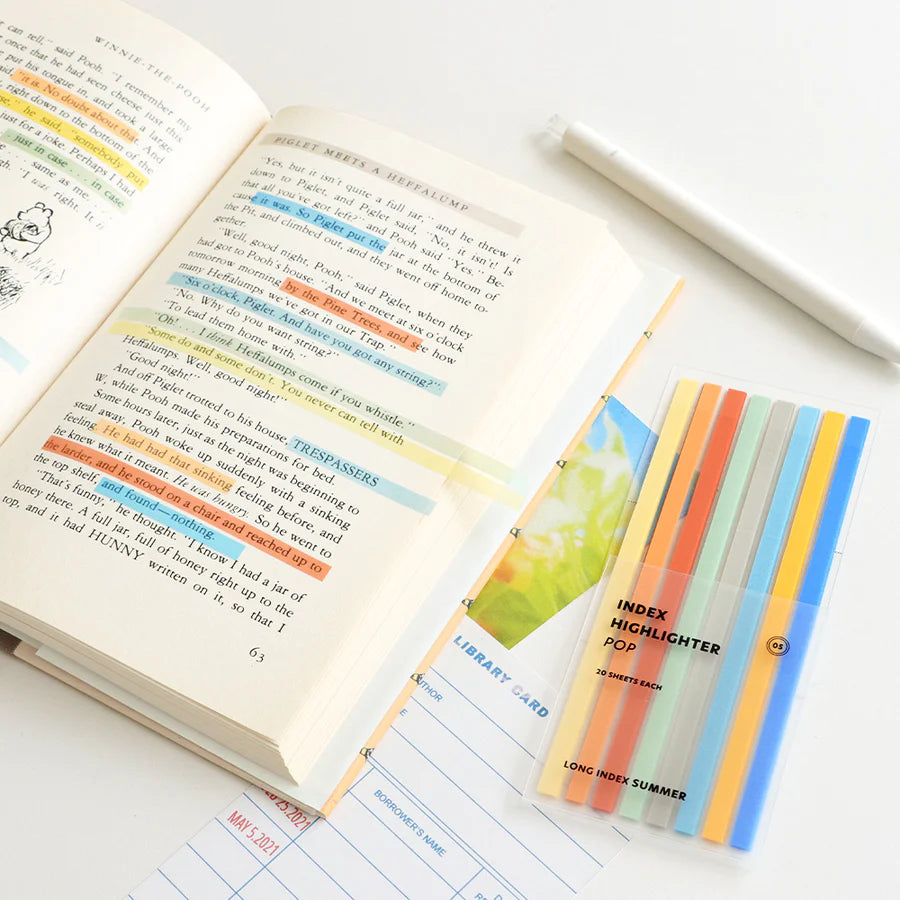 WINNIE-THE-POOH
can tell," said Pooh. "I remember
once that he had seen cheese just this
put his tongue in, and took a large
"it is. No doubt about that. And
right down to the bottom of the
he said, "somebody put
just for a joke. Perhaps I had
just in case . . . in case
same as me.
I was right. It
PIGLET MEETS A HEFFALUMP
"Yes, but it isn't quite a full jar," and he threw it
down to Piglet, and Piglet said, "No, it isn't! Is
that all you've got left?" and Pooh said "Yes." Be-
cause it was. So Piglet put the jar at the bottom of
the Pit, and climbed out, and they went off home to-
gether.
"Well, good night, Pooh," said Piglet, when they
had got to Pooh's house. "And we meet at six o'clock
tomorrow morning by the Pine Trees, and see how
many Heffalumps we've got in our Trap."
"Six o'clock, Piglet. And have you got any string?"
"No. Why do you want string?"
"To lead them home with."
"Oh! . . . I think Heffalumps come if you whistle."
"Some do and some don't. You never can tell with
Heffalumps. Well, good night!"
"Good night!"
And off Piglet trotted to his house TRESPASSERS
W, while Pooh made his preparations for bed.
Some hours later, just as the night was beginning to
steal away, Pooh woke up suddenly with a sinking
feeling. He had had that sinking feeling before, and
he knew what it meant. He was hungry. So he went to
the larder, and he stood on a chair and reached up to
the top shelf, and found—nothing.
"That's funny," he thought. "I know I had a jar of
honey there. A full jar, full of honey right up to the
top, and it had HUNNY written on it, so that I
63
LIBRARY CARD
BORROWER'S NAME
25.2021
MAY 5.2021
INDEX
HIGHLIGHTER
POP
05
20 SHEETS EACH
LONG INDEX SUMMER